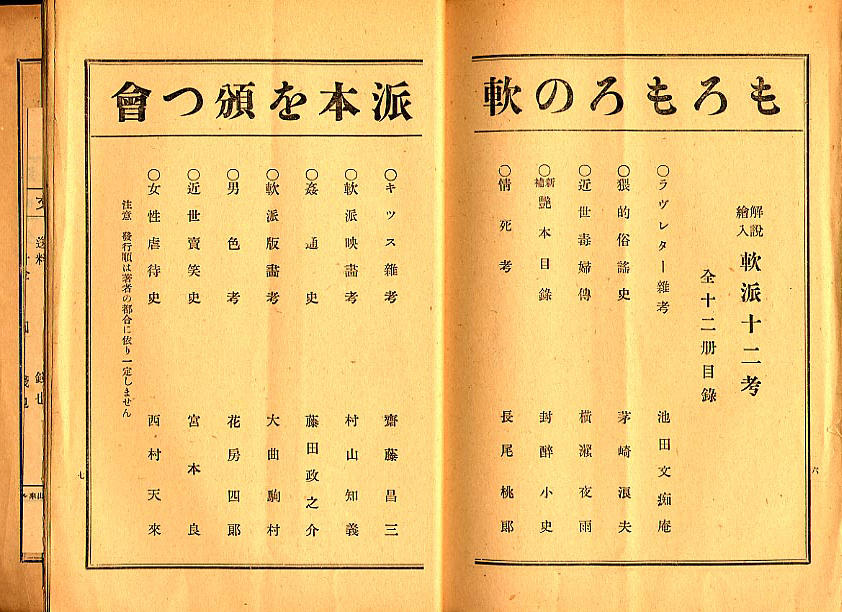 もろもろの軟派本を頒つ會
解說繪入 軟派十二考
全十二册目錄
〇ラヴレター雜考 池田文痴庵
〇猥的俗謠史 茅崎浪夫
〇近世毒婦傳 橫瀨夜雨
〇新補艷本目錄 封醉小史
〇情死考 長尾桃郎
〇キツス雜考 齋藤昌三
〇軟派映畵考 村山知義
〇姦通史 藤田政之介
〇軟派版畵考 大曲駒村
〇男色考 花房四郎
〇近世賣笑史 宮本良
〇女性虐待史 西村天來
注意 發行順は著者の都合に依り一定しません
六
七